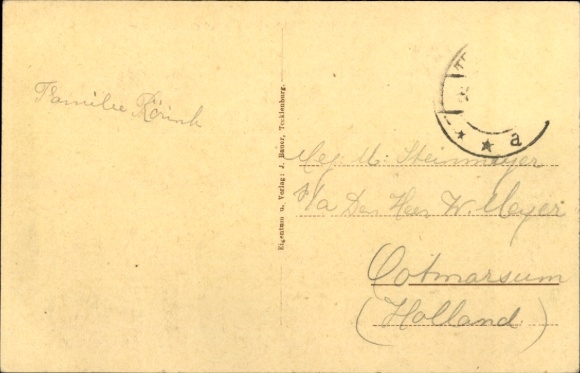 Familie Rörink
Eigentum u. Verlag: J. Bauer, Tecklenburg.
a
Mej: M: Steinmeyer
P/a Den Heer W. Meyer
Ootmarsum
(Holland)